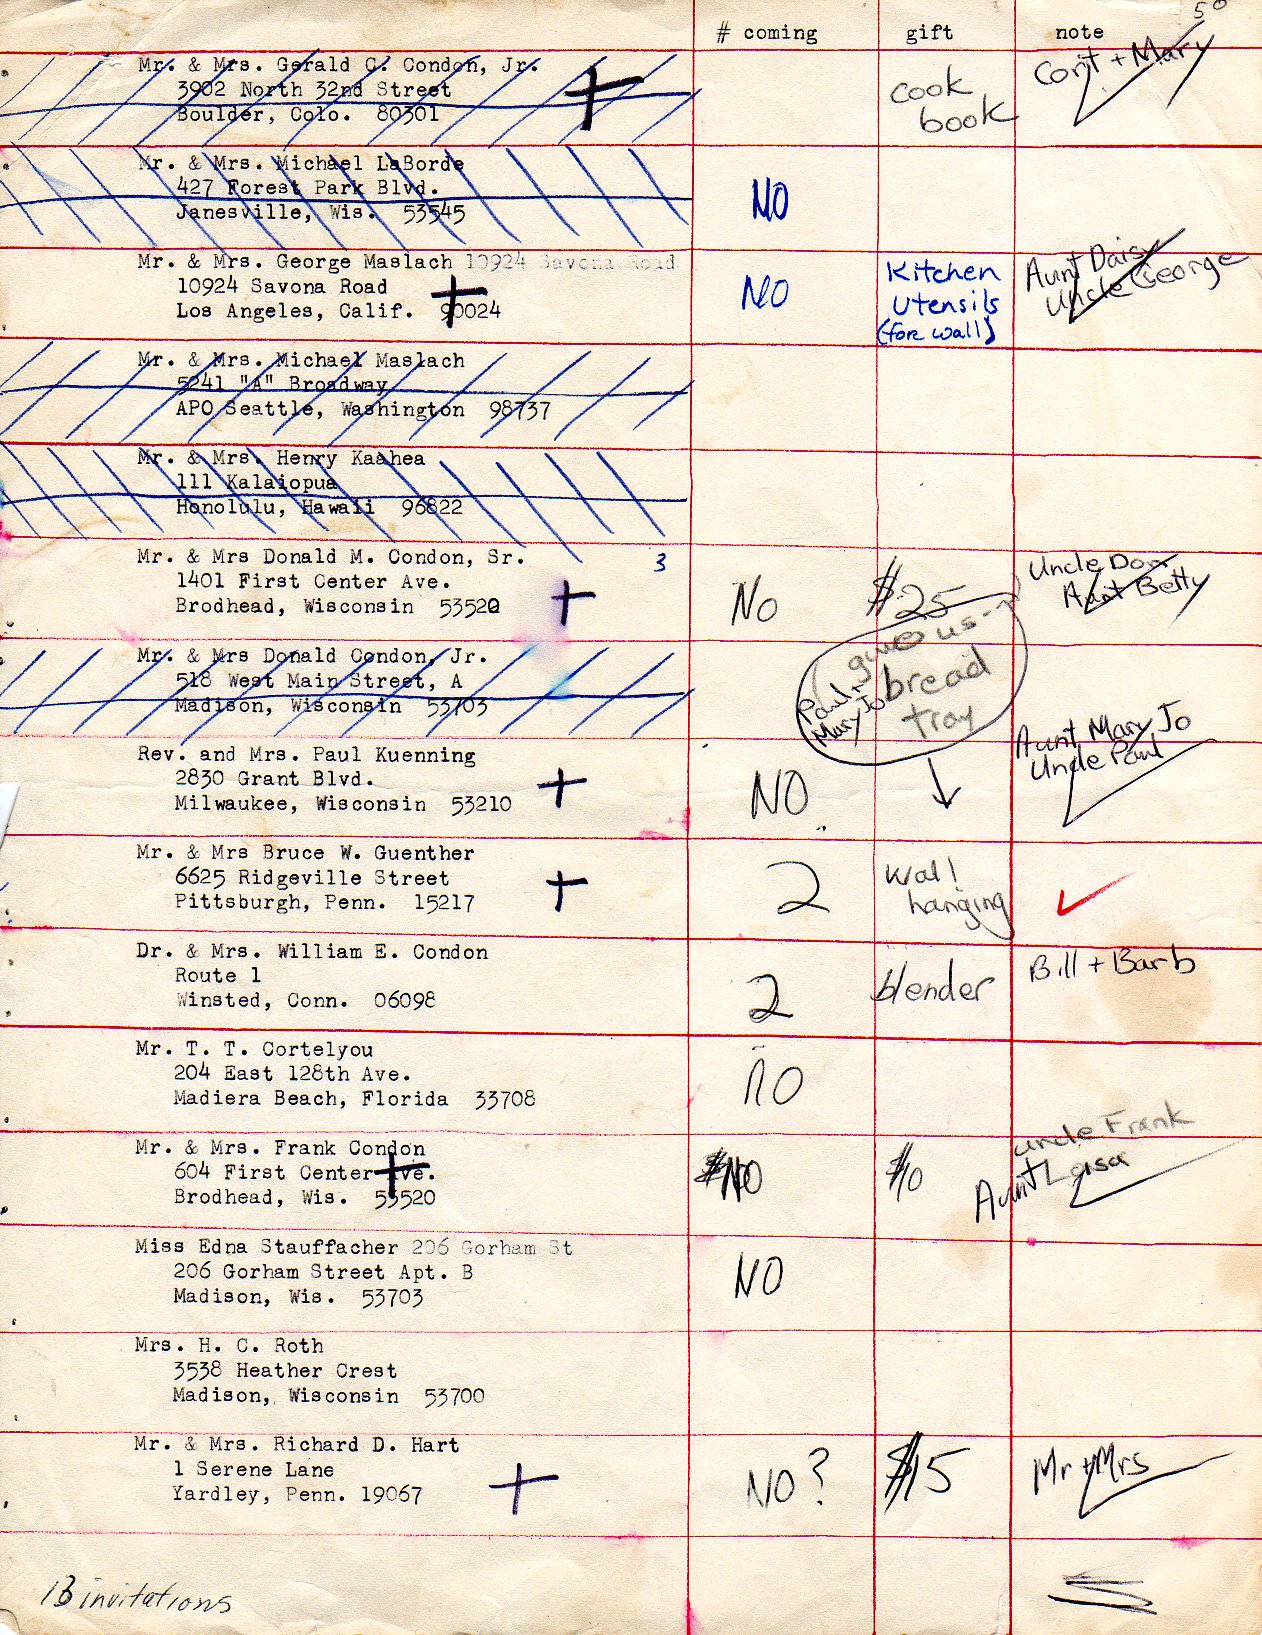 50
# coming gift note
Mr. & Mrs. Gerald C. Condon, Jr.
3902 North 32nd Street
Boulder, Colo. 80301
cook
book
Cont + Mary
Mr. & Mrs. Michael LaBorde
427 Forest Park Blvd.
Janesville, Wis. 53545
NO
Mr. & Mrs. George Maslach 10924 Savona Road
10924 Savona Road
Los Angeles, Calif. 90024
NO
Kitchen
Utensils
(for wall)
Aunt Daisy
Uncle George
Mr. & Mrs. Michael Maslach
5241 "A" Broadway
APO Seattle, Washington 98737
Mr. & Mrs. Henry Kaahea
111 Kalaiopua
Honolulu, Hawaii 96822
Mr. & Mrs Donald M. Condon, Sr. 3
1401 First Center Ave.
Brodhead, Wisconsin 53520
No
$25
Uncle Don
Aunt Betty
Mr. & Mrs Donald Condon, Jr.
518 West Main Street, A
Madison, Wisconsin 53703
Paul +
Mary Jo
give us
bread
tray
Rev. and Mrs. Paul Kuenning
2830 Grant Blvd.
Milwaukee, Wisconsin 53210
NO
Aunt Mary Jo
Uncle Paul
Mr. & Mrs Bruce W. Guenther
6625 Ridgeville Street
Pittsburgh, Penn. 15217
2
wall
hanging
Dr. & Mrs. William E. Condon
Route 1
Winsted, Conn. 06098
2
blender
Bill + Barb
Mr. T. T. Cortelyou
204 East 128th Ave.
Madiera Beach, Florida 33708
no
Mr. & Mrs. Frank Condon
604 First Center Ave.
Brodhead, Wis. 53520
NO
$10
uncle Frank
Aunt Loisa
Miss Edna Stauffacher 206 Gorham St
206 Gorham Street Apt. B
Madison, Wis. 53703
NO
Mrs. H. C. Roth
3538 Heather Crest
Madison, Wisconsin 53700
Mr. & Mrs. Richard D. Hart
1 Serene Lane
Yardley, Penn. 19067
NO?
$15
Mr + Mrs
13 invitations